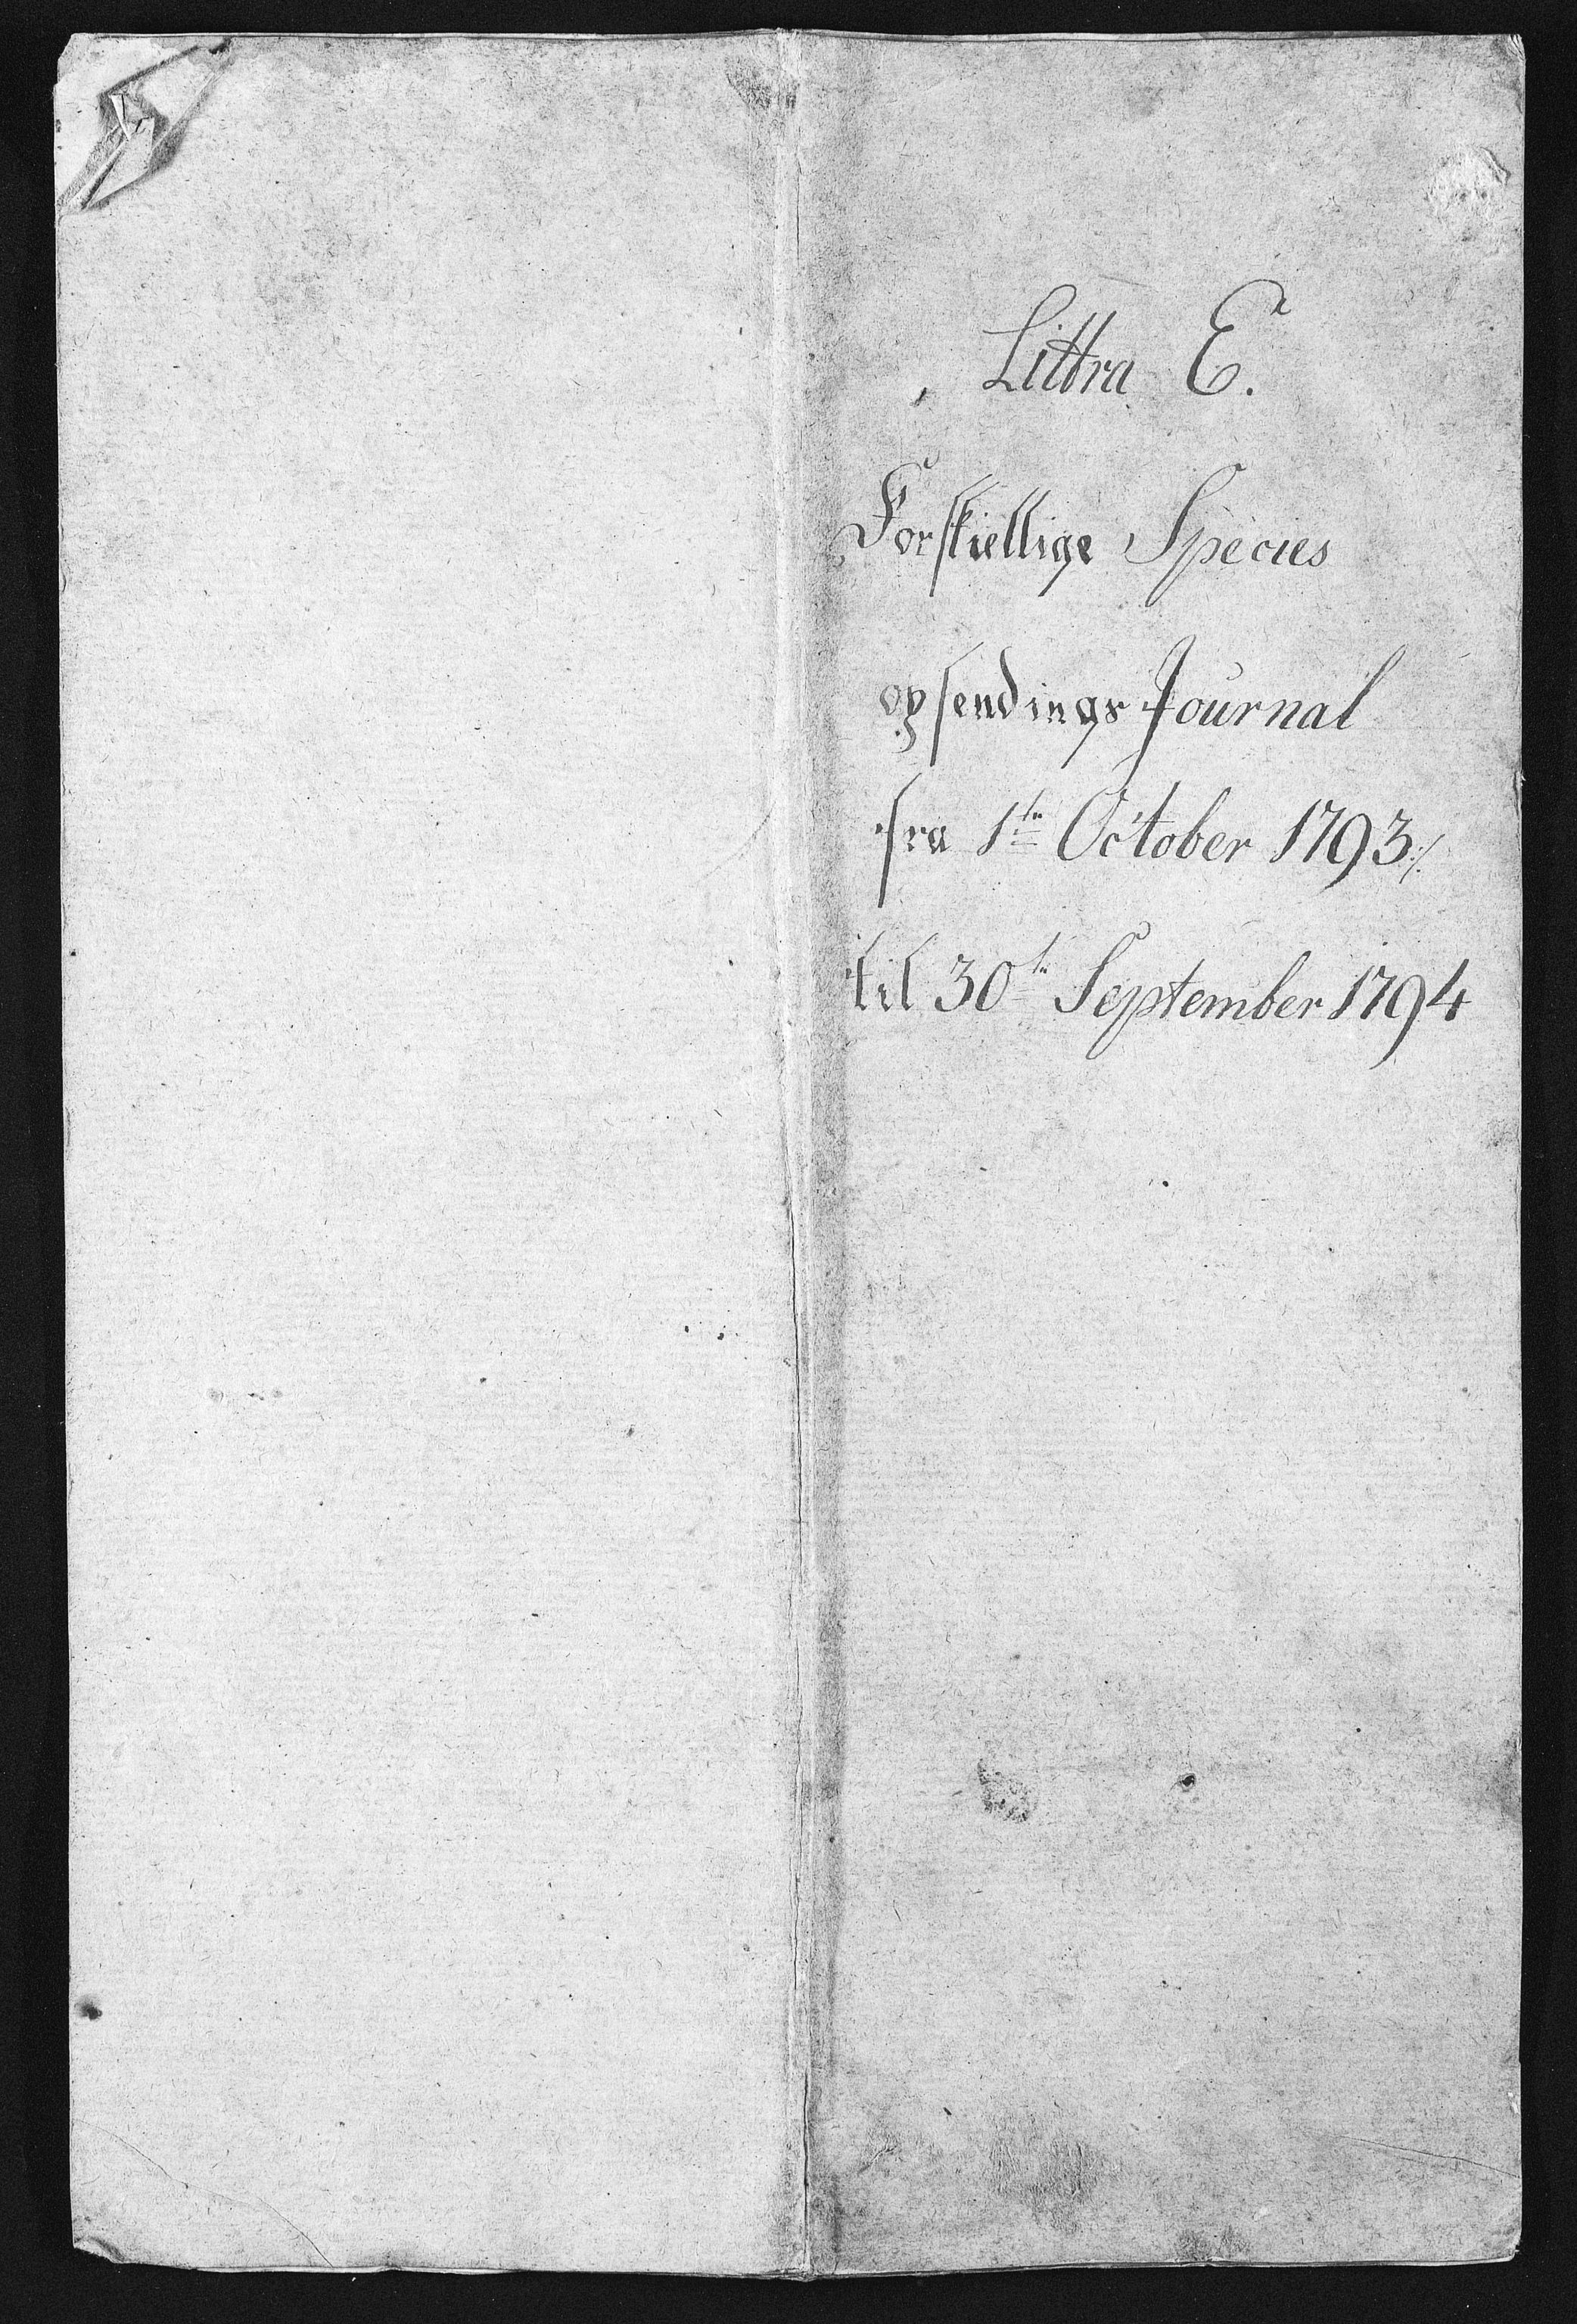 Littra E.
Forskiellige Species
opsendings Journal
fra 1te October 1793
til 30te September 1794